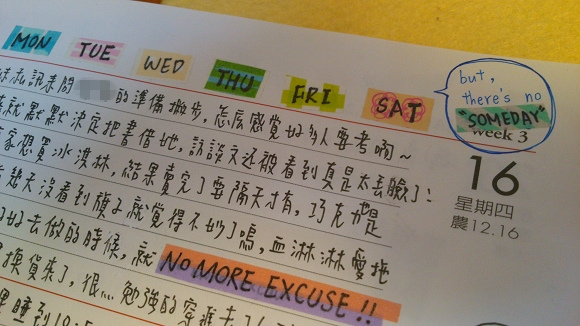 MON TUE WED THU FRI SAT
but,
there's no
"SOMEDAY"
week 3
16
星期四
農12.16
妹私訊來問
的準備撇步,怎麼感覺好多人要考啊~
就默默決定把書借她,訪談文还被看到真是太丟臉了:
家想買冰淇淋,結果賣完了要隔天才有,巧克力是
幾天沒看到旗子就覺得不妙了嗎,血淋淋愛拖
去做的時候,就 NO MORE EXCUSE!!
換貨來了,很... 勉強的
睡到10: